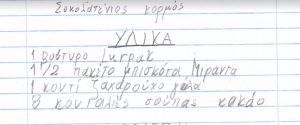 Σοκολατένιος κορμός
ΥΛΙΚΑ
1 βούτυρο
1 1/2 πακέτο μπισκότα Μιράντα
1 κουτί ζαχαρούχο γάλα
8 κουταλιές σούπας κακάο